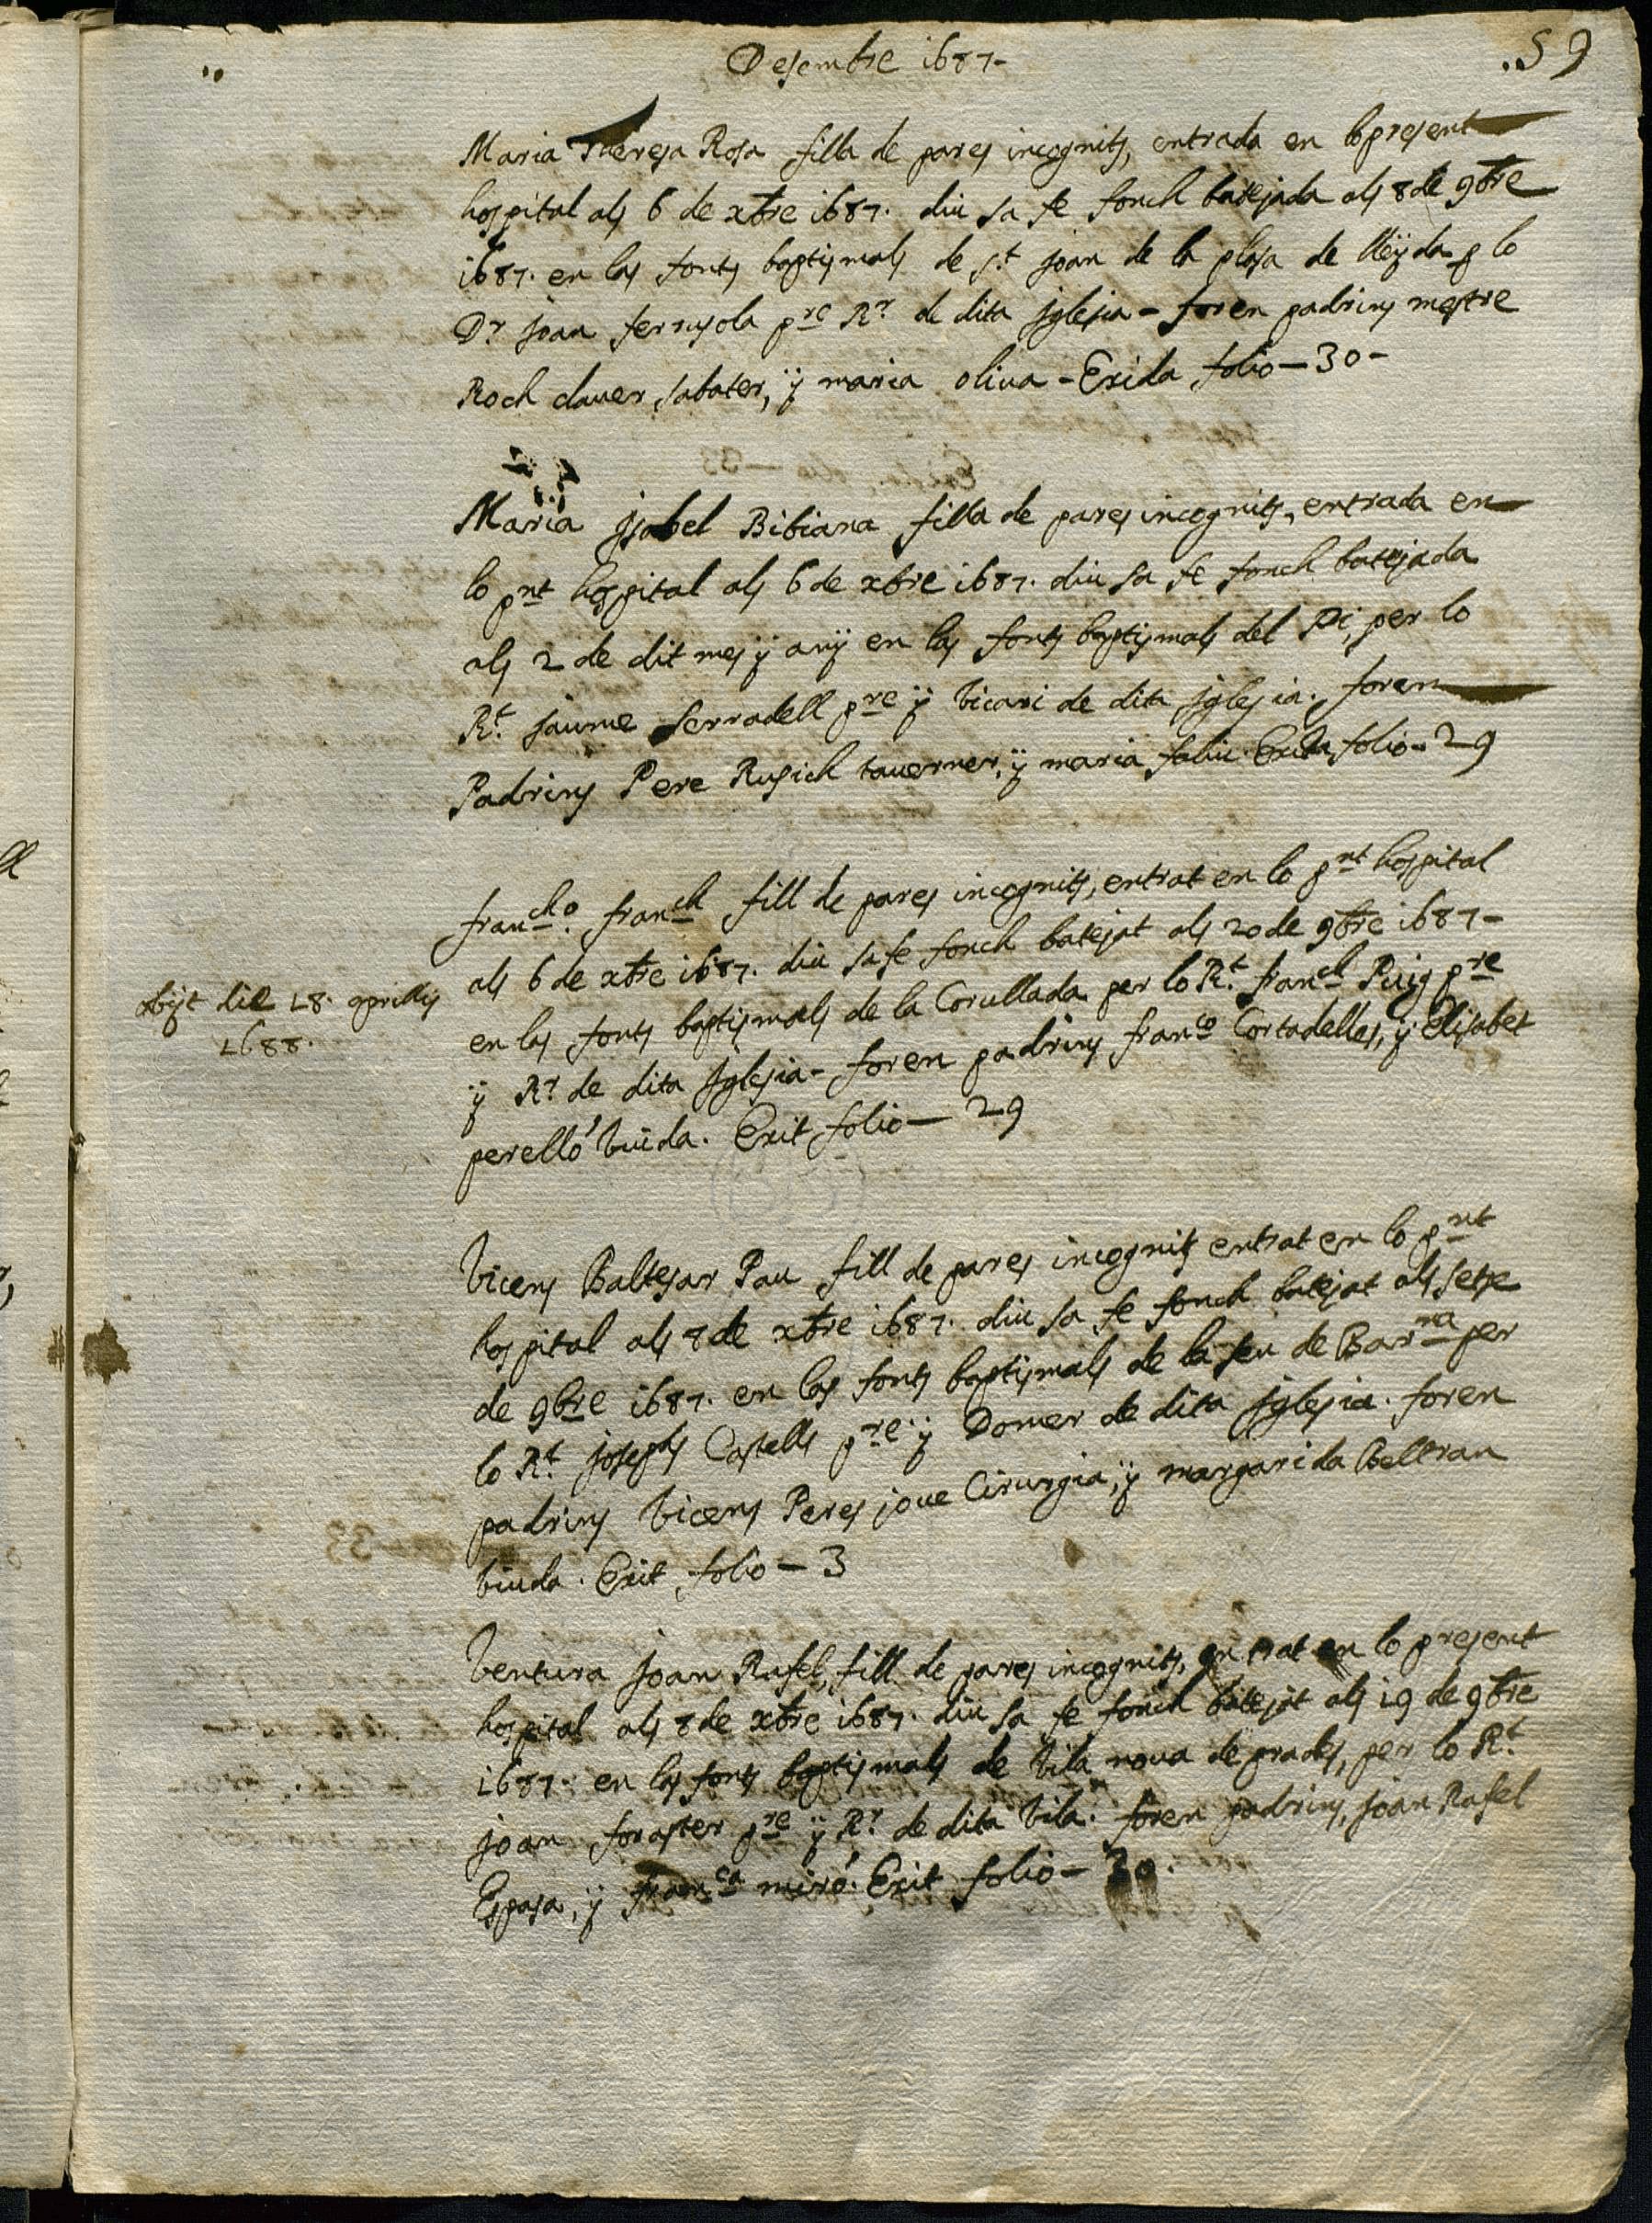 Desembre 1687-
.59
Maria Theresa Rosa filla de pares incognits, entrada en lo present
hospital als 6 de xbre 1687. diu sa fe fonch batejada als 8 de 9bre
1687. en las fonts baptismals de St. joan de la plasa de lleÿda p lo
Dr joan ferrusola pre Rr. de dita jglesia - foren padrins mestre
Roch clauer sabater, ÿ maria oliua - Exida folio - 30 -
Maria jsabel Bibiana filla de pares incognits, entrada en
lo pnt hospital als 6 de xbre 1687. diu sa fe fonch batejada
als 2 de dit mes ÿ anÿ en las fonts baptismals del Pi, per lo
Rt. jaume serradell pre ÿ vicari de dita jglesia. foren
Padrins Pere Rusich tauerner, ÿ maria feliu. Exida folio - 29
francho. franch fill de pares incognits, entrat en lo pnt hospital
als 6 de xbre 1687. diu sa fe fonch batejat als 20 de 9bre 1687 -
en las fonts baptismals de la Corullada per lo Rt. franch Puig pre
ÿ Rr. de dita jglesia - foren padrins franco Cortadellas, ÿ Elisabet
perelló viuda. Exit folio - 29
obijt die 18. aprillis
1688.
Vicens Baltesar Pau fill de pares incognits entrat en lo pnt
hospital als 8 de xbre 1687. diu sa fe fonch batejat als setze
de 9bre 1687. en las fonts baptismals de la seu de Barna per
lo Rt. joseph Castells pre ÿ Domer de dita jglesia. foren
padrins Vicens Peres joue Cirurgia, ÿ margarida Beltran
viuda. Exit folio - 3
Ventura joan Rafel, fill de pares incognits, entrat en lo present
hospital als 8 de xbre 1687. diu sa fe fonch batejat als 19 de 9bre
1687. en las fonts baptismals de vila noua de prades, per lo Rt.
joan foraster pre ÿ Rr. de dita vila. foren padrins, joan Rafel
Espasa, ÿ franca miró. Exit folio - 30.